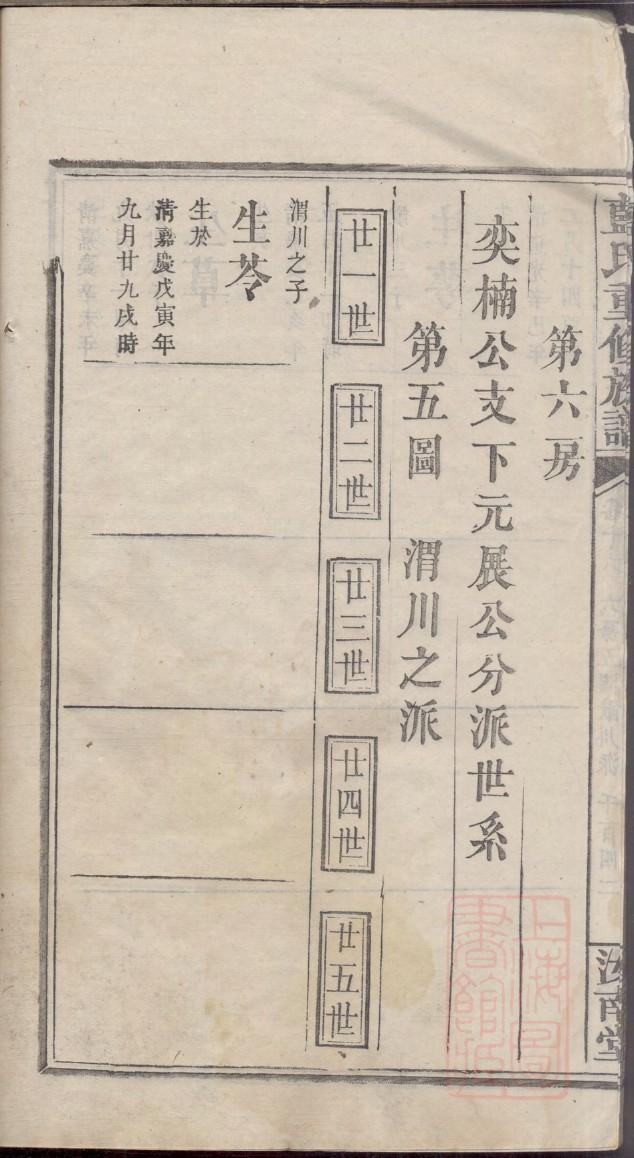 藍氏重修族譜
汝南堂
第六房
奕楠公支下元展公分派世系
第五圖 渭川之派
廿一世
廿二世
廿三世
廿四世
廿五世
渭川之子
生芩
生於
清嘉慶戊寅年
九月廿九戌時
上海圖
書館藏